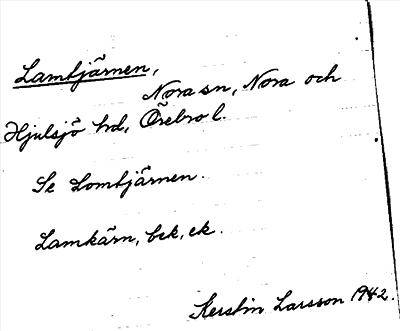 Lamtjärnen,
Nora sn, Nora och
Hjulsjö hd, Örebro l.
Se Lomtjärnen.
Lamkärn, bek, ek.
Kerstin Larsson 1942.